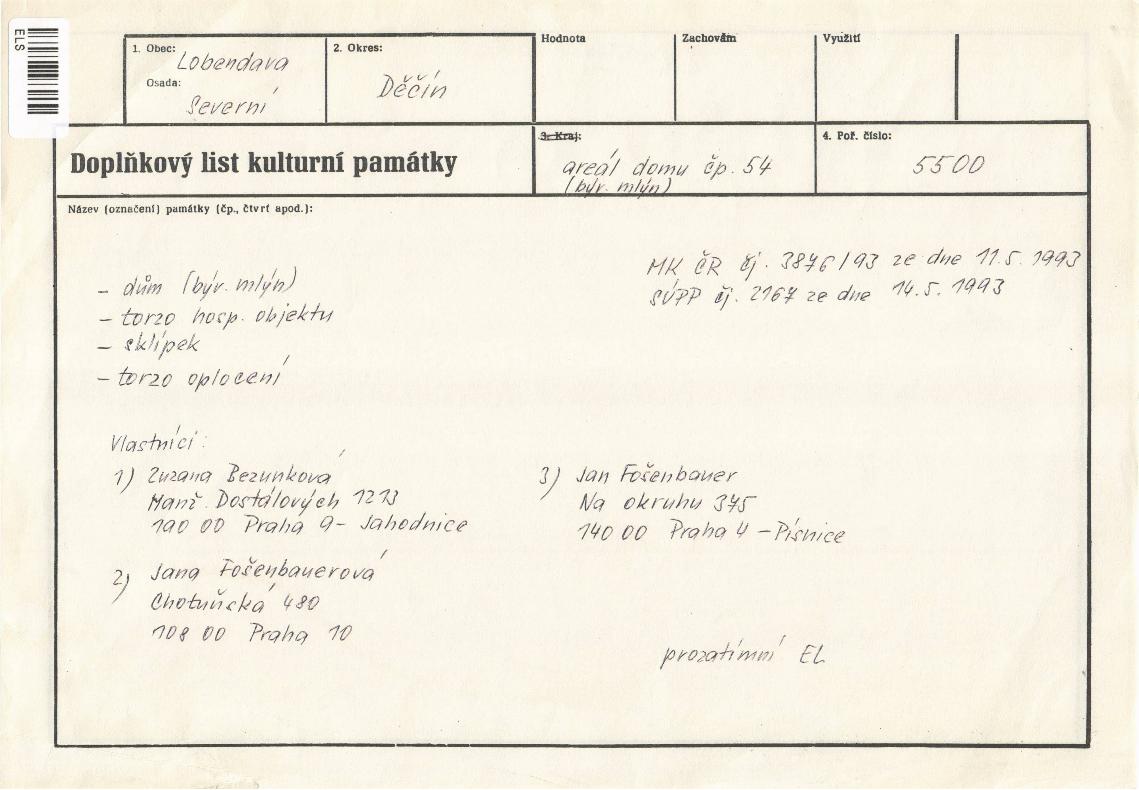 ELS
1. Obec: Lobendava
Osada: Severní
2. Okres: Děčín
Hodnota
Zachovám
Využití
Doplňkový list kulturní památky
3. Kraj:
areál domu čp. 54
(býv. mlýn)
4. Poř. číslo:
5500
Název (označení) památky (čp., čtvrť apod.):
MK ČR čj. 3876/93 ze dne 11.5.1993
SÚPP čj. 2167 ze dne 14.5.1993
- dům (býv. mlýn)
- torzo hosp. objektu
- sklípek
- torzo oplocení
Vlastníci:
1) Zuzana Bezunková
Manž. Dostálových 1213
190 00 Praha 9 - Jahodnice
2) Jana Fošenbauerová
Chotuňská 480
108 00 Praha 10
3) Jan Fošenbauer
Na okruhu 375
140 00 Praha 4 - Písnice
prozatímní EL